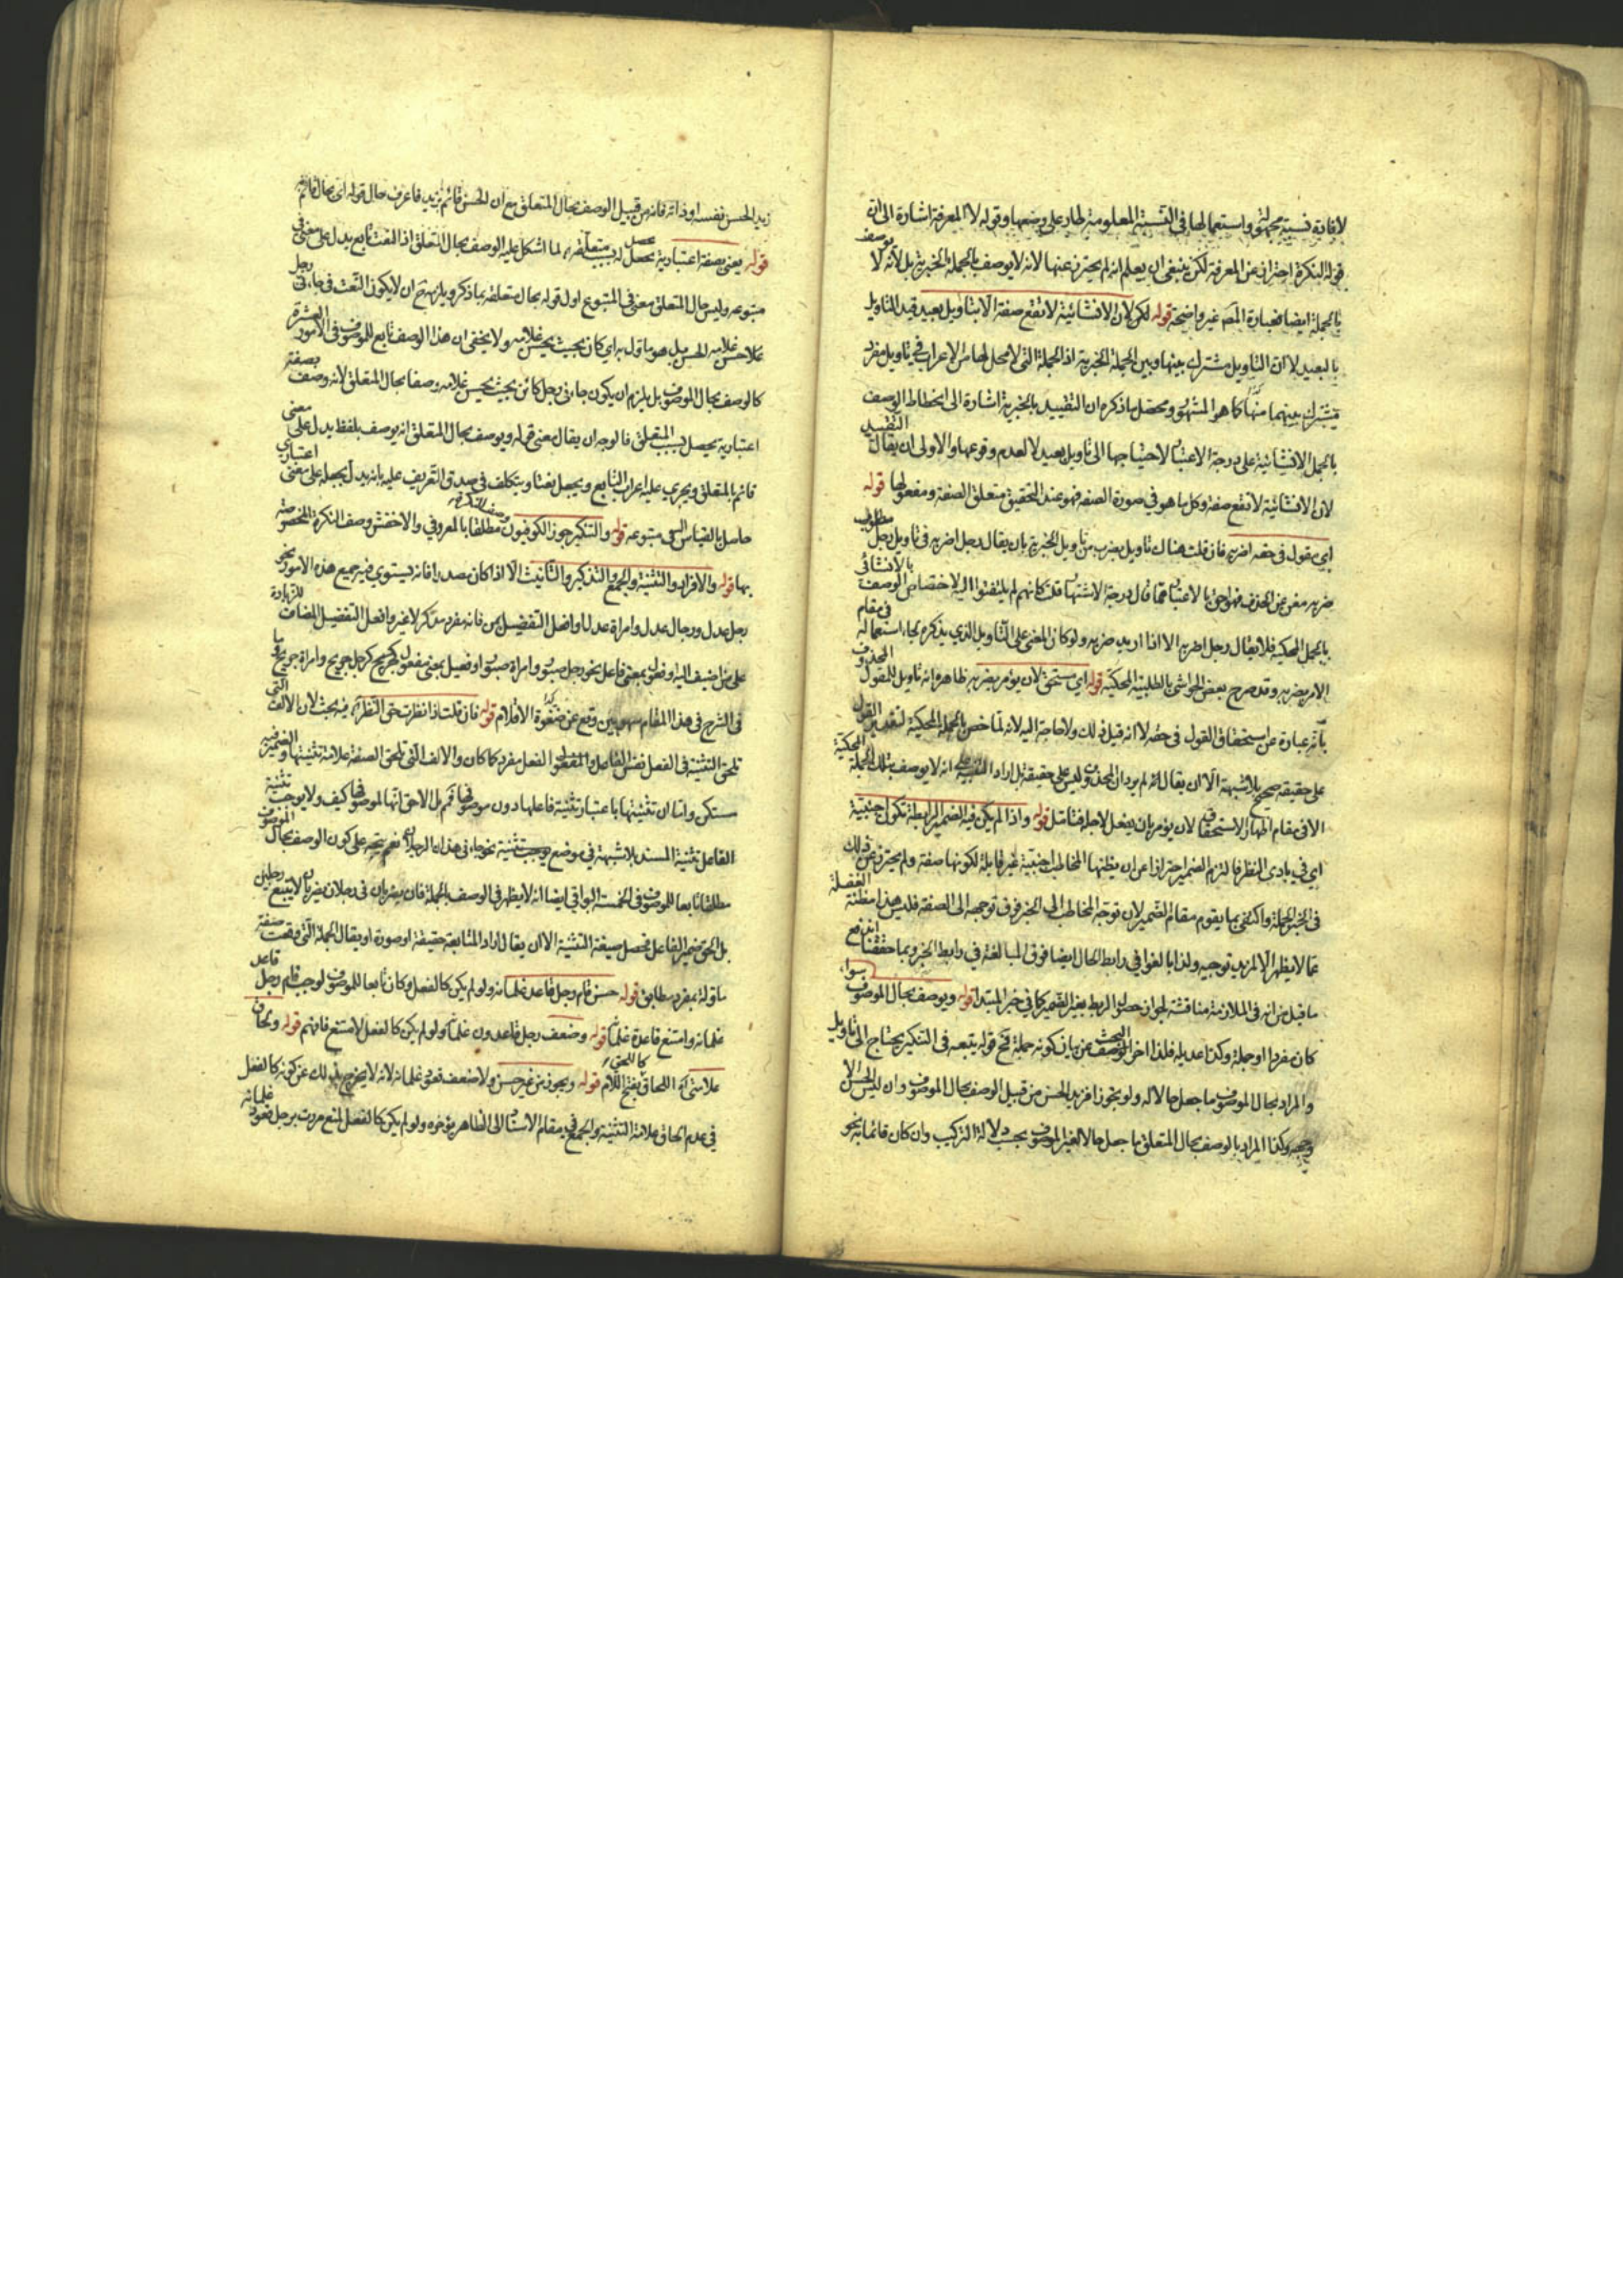 لافادة نسبة مجهولة واستعمالها في النسبة المعلومة طار على وضعها وقوله لا المعرفة اشارة الى ان
قوله النكرة احتراز عن المعرفة لكن ينبغي ان يعلم انه لم يحترز عنها لانه لا يوصف بالجملة الخبرية بل لانه لا يوصف
بالجملة ايضا فعبارة المصـ غير واضحة قوله لكن لان الانشائية لا تقع صفة الا بتاويل بعيد قيد التاويل
بالبعيد لا ان التاويل مشترك بينها وبين الجملة الخبرية اذ الجملة التي لا محل لها من الاعراب في تاويل مفرد
مشترك بينهما كما هو المشهور ومحصل ما ذكره ان التقييد بالخبرية اشارة الى انحطاط الوصف
بالجمل الانشائية على درجة الاعتبار لاحتياجها الى تاويل بعيد لا لعدم وقوعها والاولى ان يقال التقييد
لان الانشائية لا تقع صفة وكل ما هو في صورة الصفة فهو عند التحقيق متعلق الصفة ومفعولها قوله
اي مقول في حقه اضربه فان قلت هناك تاويل يضرب من تاويل الخبرية بان يقال رجل اضربه في تاويل رجل مطلوب
ضربه مغن عن الحذف فهو احق بالاعتبار فما قال درجة الاشتهار قلت كانهم لم يلتفتوا اليه لاختصاص الوصف بالانشائي
بالجمل المحكية فلا يقال رجل اضربه الا اذا اريد ضربه ولو كان المعنى على التاويل الذي يذكره لجاز استعماله في مقام
الامر بضربه وقد صرح بعض الحواشي بالطلبية المحكية قوله اي مستحق لان يؤمر بضربه ظاهره انه تاويل للمقول المحذوف
بانه عبارة عن استحقاق القول في حقه لا انه قيل ذلك ولا حاجة اليه لانه لما خص بالجملة المحكية لتقدير القول
على حقيقته صحيح بلا شبهة الا ان يقال انه لم يرد ان المحذوف ليس على حقيقته بل اراد التنبيه على انه لا يوصف بتلك الجملة المحكية
الا في مقام اظهار الاستحقاق لان يؤمر بان يفعل لاجله فتامل قوله واذا لم يكن فيه الضمير الرابط تكون اجنبية
اي في بادى النظر فالتزم الضمير احترازا عن ان يظنها المخاطب اجنبية غير قابلة لكونها صفة ولم يحترز عن ذلك
في الخبر الجملة واكتفى بما يقوم مقام الضمير لان توجه المخاطب الى الخبر فوق توجهه الى الصفة فليس هذا مظنة الغفلة
عما لا يظهر الا لمزيد توجيه ولذا بالغوا في رابط الحال ايضا فوق المبالغة في رابط الخبر وبما حققنا اندفع
ما قيل من انه في الملازمة مناقشة لجواز حصول الربط بغير الضمير كما في خبر المبتدأ قوله ويوصف بحال الموصوف سواء
كان مفردا او جملة وكذا عديله فلذا اخر البحث عن بيان كونه جملة فح قوله يتبعه في التنكير يحتاج الى تاويل
والمراد بحال الموصوف ما جعل حالا له ولو تجوزا فزيد الحسن من قبيل الوصف بحال الموصوف وان ليس الحسن الا
وجهه وكذا المراد بالوصف بحال المتعلق ما جعل حالا لغير الموصوف بحسب دلالة التركيب وان كان قائما به نحو
زيد الحسن نفسه او ذاته فانه من قبيل الوصف بحال المتعلق مع ان الحسن قائم بزيد فاعرف حال قوله اي بحال قائم به
قوله يعني بصفة اعتبارية تحصل له بسبب متعلقه لما اشكل عليه الوصف بحال المتعلق اذ النعت تابع يدل على معنى في
متبوعه وليس حال المتعلق معنى في المتبوع اول قوله بحال متعلقه بما ذكر ويلزمه ح ان لا يكون النعت في جاءني رجل
حسن غلامه الحسن بل هو ما اول به اي كان بحيث يحسن غلامه ولا يخفى ان هذا الوصف تابع للموصوف في الامور العشرة
كالوصف بحال الموصوف بل يلزم ان يكون جاءني رجل كائن بحيث يحسن غلامه وصفا بحال المتعلق لانه وصف بصفة
اعتبارية يحصل بسبب المتعلق فالوجه ان يقال معنى قوله ويوصف بحال المتعلق انه يوصف بلفظ يدل على معنى
قائم بالمتعلق ويجري عليه اعراب التابع ويجعل نعتا ويتكلف في صدق التعريف عليه بانه يدل بجعله على معنى اعتباري
حاصل بالقياس الى متبوعه قوله والتنكير جوز الكوفيون وصف النكرة مطلقا بالمعروفي والاخفش وصف النكرة المخصوصة
بها قوله والافراد والتثنية والجمع والتذكير والتانيث الا اذا كان مصدرا فانه يستوي فيه جميع هذه الامور نحو
رجل عدل ورجال عدل وامراة عدل او افعل التفضيل بمن فانه مفرد مذكر لا غير وافعل التفضيل المضاف للزيادة
على من اضيف اليه او فعول بمعنى فاعل نحو رجل صبور وامراة صبور او فعيل بمعنى مفعول كجريح كرجل جريح وامراة جريح وما
في الشرح في هذا المقام سهو بين وقع عن الاقلام قوله فان قلت اذا نظرت حق النظر آه فيه بحث لان الالف التي
تلحق التثنية في الفعل نفس الفاعل والملحق الفعل مفرد كما كان والالف التي تلحق الصفة علامة تثنيتها والضمير فيه
مستكن واما ان تثنيتها باعتبار تثنية فاعلها دون موصوفها فلم بل الاحق انها لموصوفها كيف ولا يوجب تثنية
الفاعل تثنية المسند بلا شبهة في موضع يوجب تثنية نحو جاءني هذان الرجلان نعم يتجه على كون الوصف بحال الموصوف
مطلقا تابعا للموصوف في الخمسة البواقي ايضا انه لا يظهر في الوصف بالجملة فان يضربان في رجلان يضربان لا يتبع رجلين
بل الحق ضمير الفاعل فحصل صيغة التثنية الا ان يقال اراد المتابعة حقيقة او صورة او يقال الجملة التي وقعت صفة
ماولة بمفرد مطابق قوله حسن قام رجل قاعد غلمانه ولو لم يكن كالفعل وكان تابعا للموصوف لوجب قام رجل قاعد
غلمانه وامتنع قاعدة غلمانه قوله وضعف رجل قاعدون غلمانه ولو لم يكن كالفعل لامتنع فافهم قوله والحاق
علامتي آه اللحاق بفتح اللام كالمحي قوله ويجوز من غير حسن ولا ضعف قعود غلمانه لانه لا يخرج بذلك عن كونه كالفعل
في عدم الحاق علامة التثنية والجمع في مقام الاسناد الى الظاهر يؤخره ولو لم يكن كالفعل لمنع مررت برجل قعود غلمانه